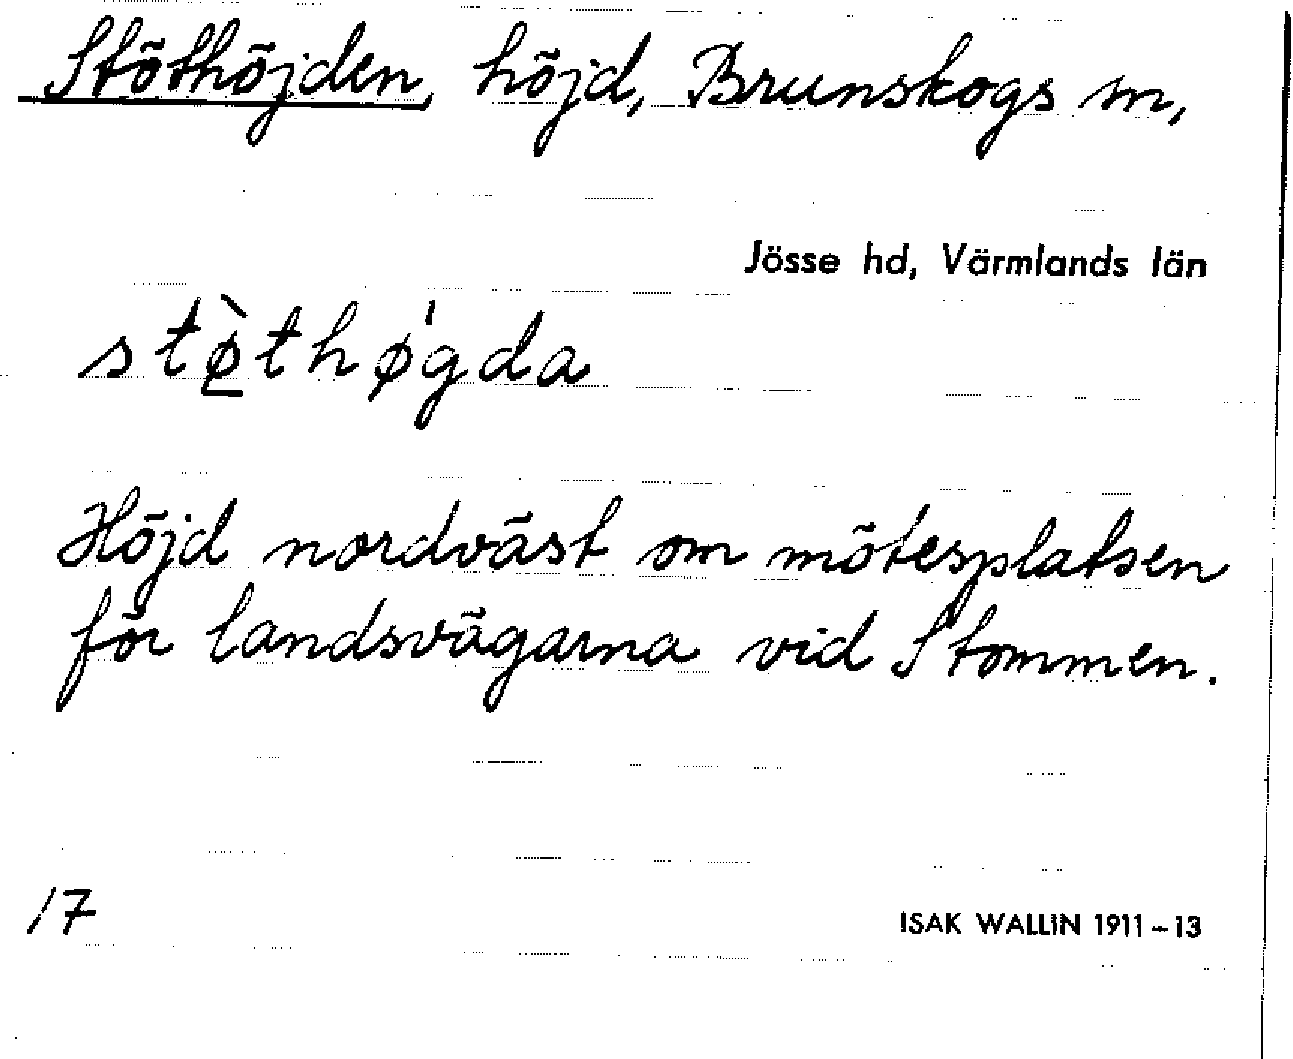 Stöthöjden, höjd, Brunskogs sn,
Jösse hd, Värmlands län
stø̱̀thǿgda
Höjd nordväst om mötesplatsen
för landsvägarna vid Stommen.
17
ISAK WALLIN 1911-13